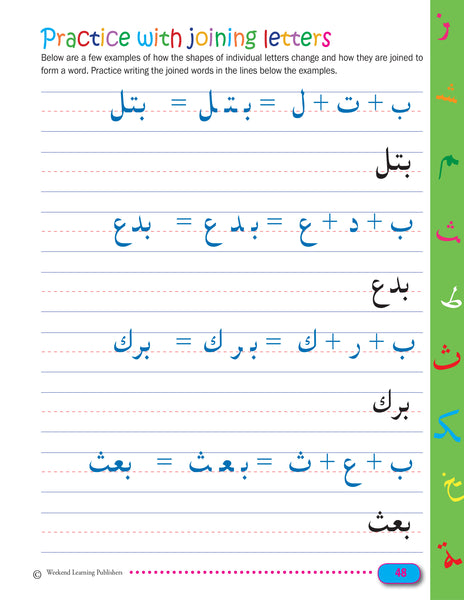 Practice with joining letters
Below are a few examples of how the shapes of individual letters change and how they are joined to
form a word. Practice writing the joined words in the lines below the examples.
ب + ت + ل = بـ ـتـ ـل = بتل
بتل
ب + د + ع = بـ ـد ع = بدع
بدع
ب + ر + ك = بـ ـر ك = برك
برك
ب + ع + ث = بـ ـعـ ـث = بعث
بعث
ز
ث
م
ث
ط
ث
ك
خ
ة
© Weekend Learning Publishers
48